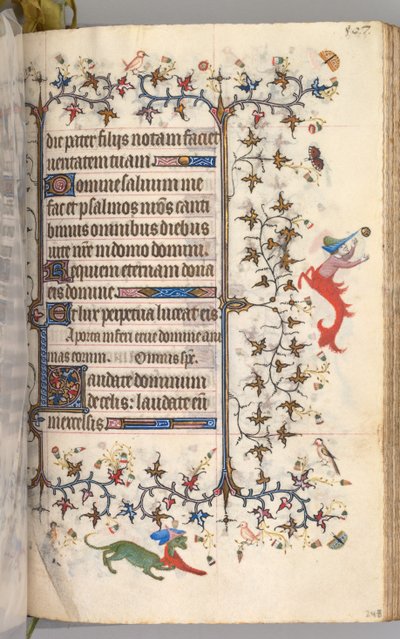 die pater filijs notam faciet
veritatem tuam
Domine saluum me
fac et psalmos nr̄os canti
bimus omnibus diebus
uite nr̄e in domo domini.
Requiem eternam dona
eis domine.
Et lux perpetua luceat eis
A porta inferi erue domine ani
mas eorum. Omnis sp̄c.
Laudate dominum
de celis: laudate eū
in excelsis
248